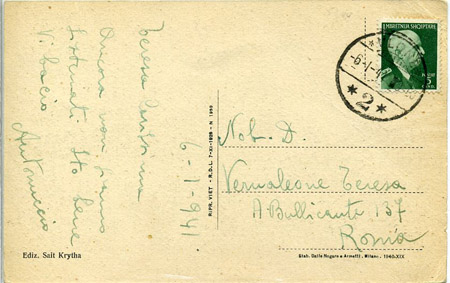 Teresa Carissima
Ancora non siamo
sistemati. Sto bene
Vi bacio
Antonuccio
6-1-941
RIPR. VIET. - R.D.L. 7-XI-1926 - N 1945
MBRETNIJA SHQIPTARE
5
-6-1-4
* 2 *
Nob. D.
Vernaleone Teresa
A Bullicante 137
Roma
Ediz. Sait Krytha
Stab. Dalle Nogare e Armetti - Milano - 1940-XIX